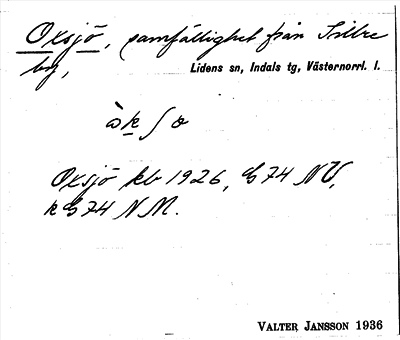 Oxsjö, samfällighet från Sillre
by,
Lidens sn, Indals tg, Västernorrl. l.
òk ʃ ө
Oxsjö kb 1926, G74 NV,
k G74 NM.
VALTER JANSSON 1936